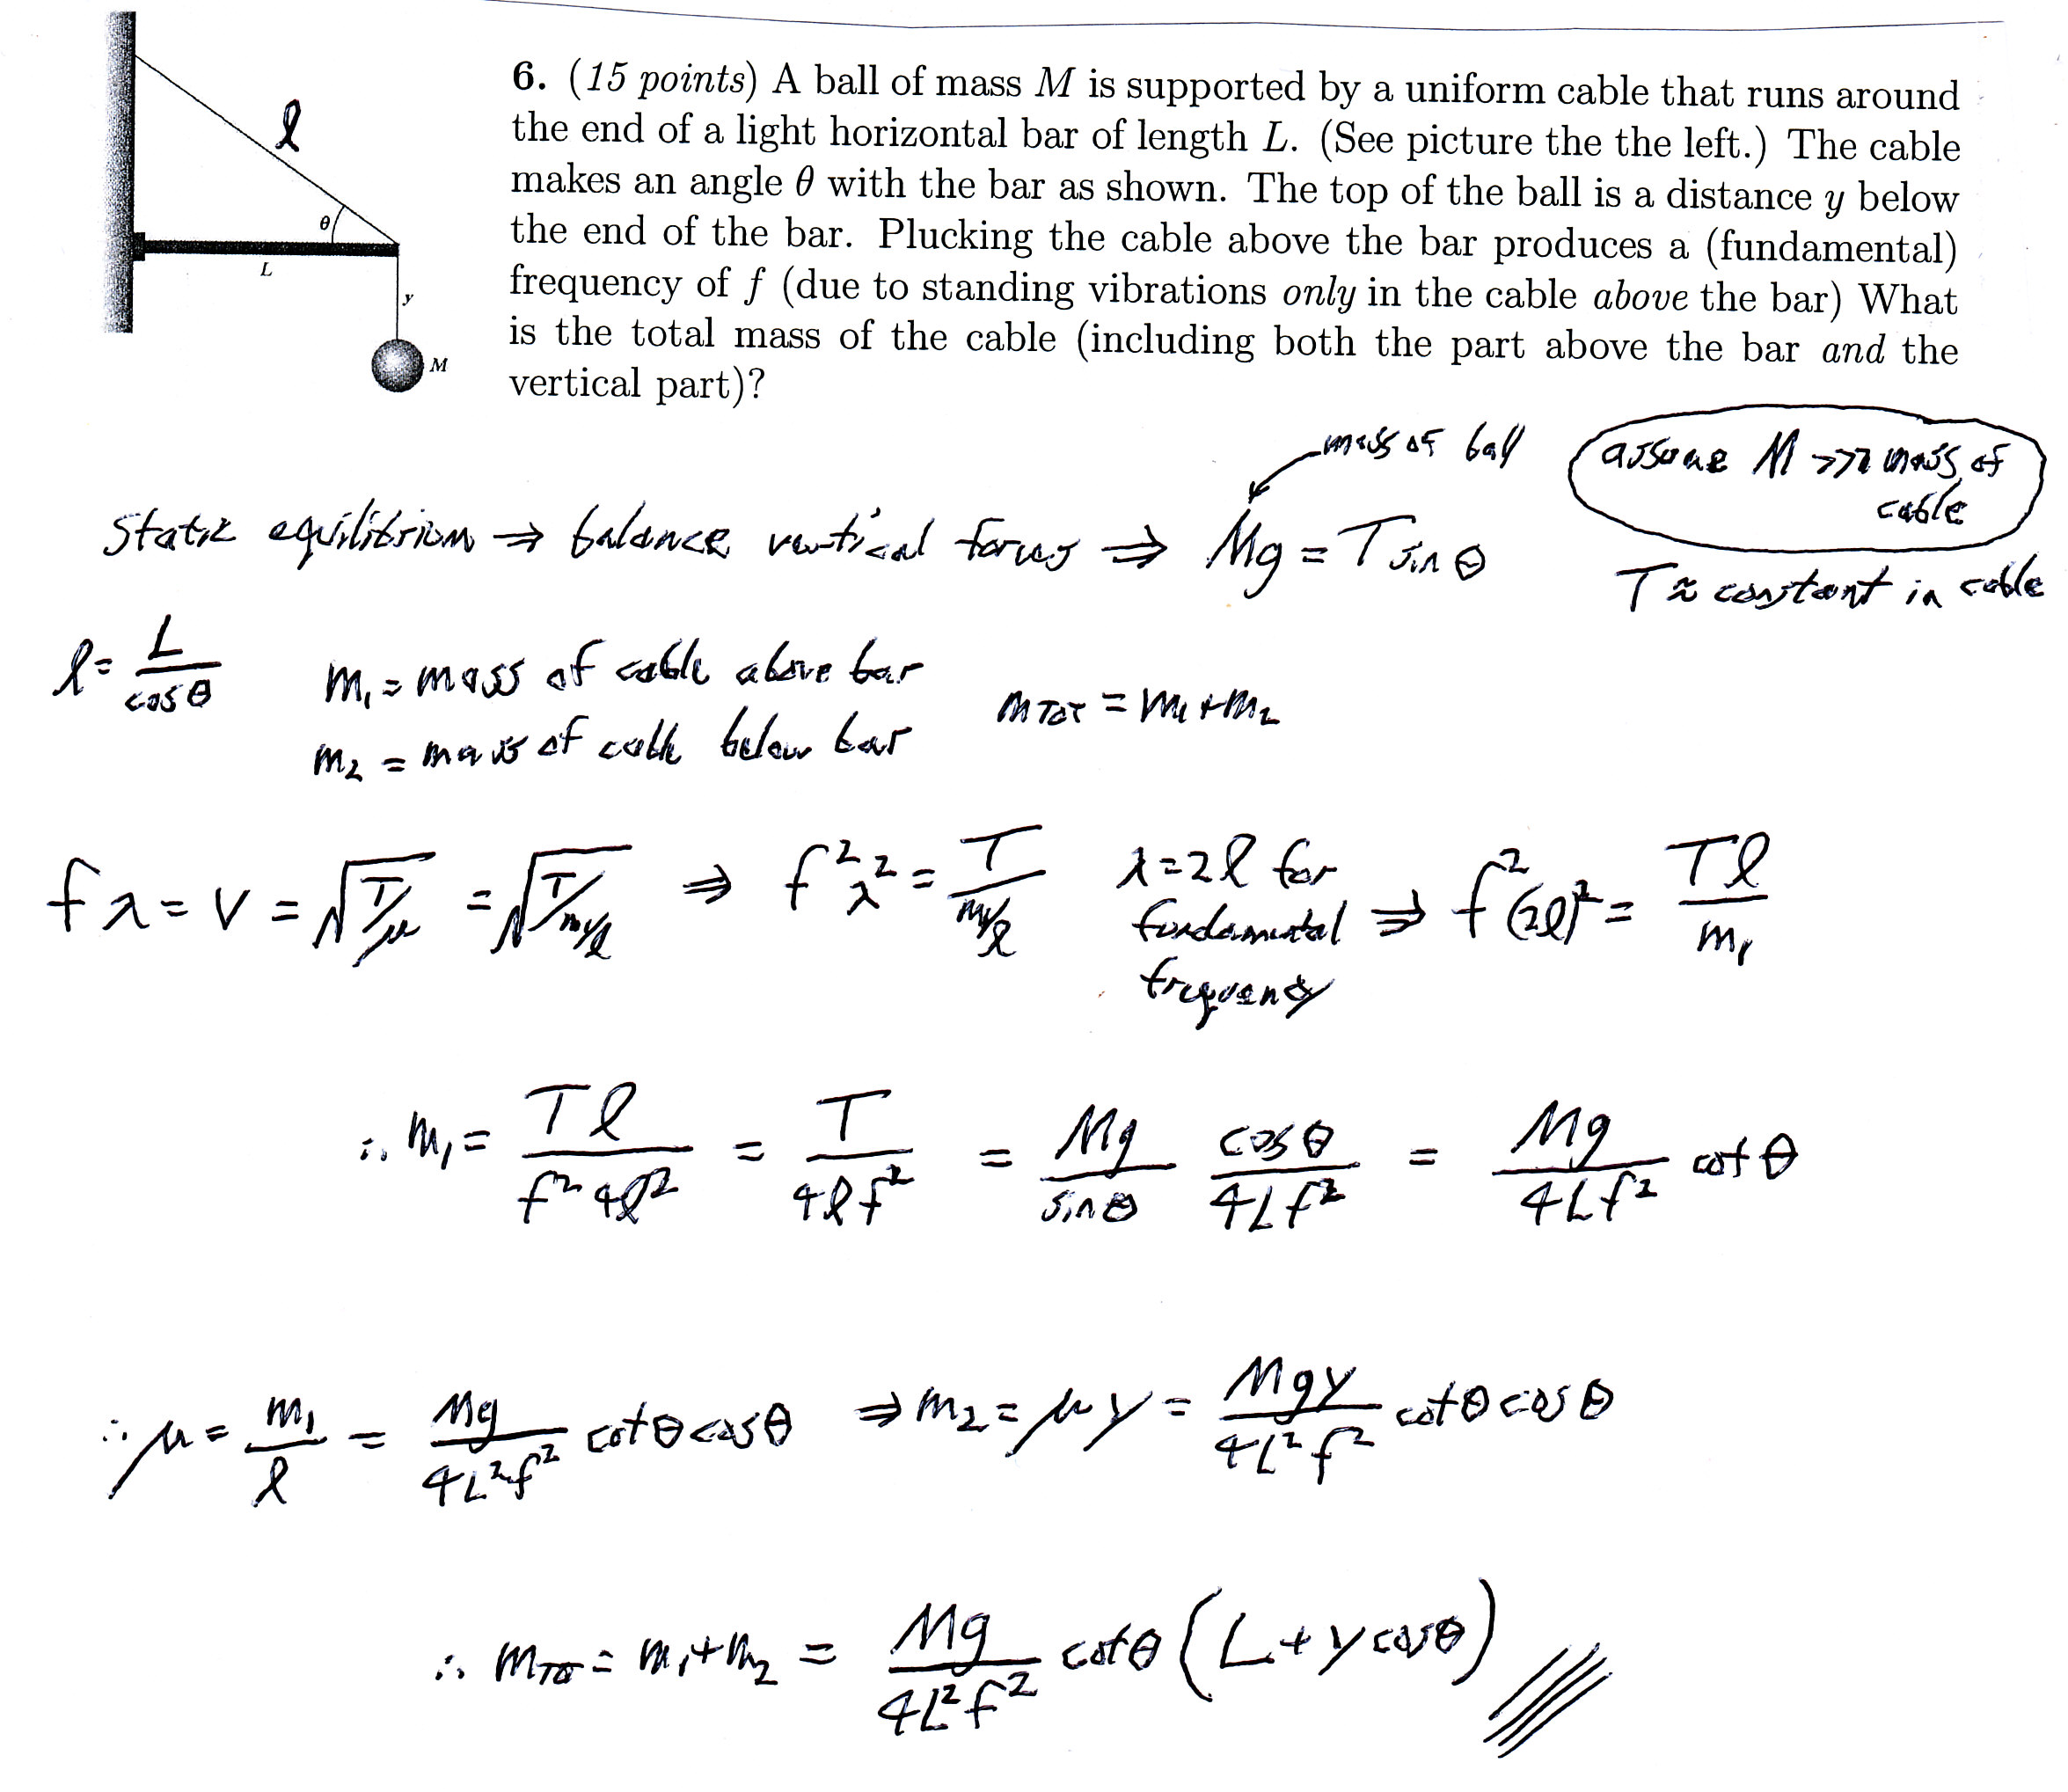 ℓ
θ
L
y
M
6. (15 points) A ball of mass M is supported by a uniform cable that runs around
the end of a light horizontal bar of length L. (See picture the the left.) The cable
makes an angle θ with the bar as shown. The top of the ball is a distance y below
the end of the bar. Plucking the cable above the bar produces a (fundamental)
frequency of f (due to standing vibrations only in the cable above the bar) What
is the total mass of the cable (including both the part above the bar and the
vertical part)?
mass of ball
assume M >>> mass of
cable
Static equilibrium ⇒ balance vertical forces ⇒ Mg = T sin θ
T ≈ constant in cable
ℓ = L / cos θ
m₁ = mass of cable above bar
m₂ = mass of cable below bar
m_TOT = m₁ + m₂
f λ = v = √(T/μ) = √(T/(m₁/ℓ)) ⇒ f² λ² = T / (m₁/ℓ)
λ = 2ℓ for
fundamental
frequency
⇒ f² (2ℓ)² = Tℓ / m₁
∴ m₁ = Tℓ / (f² 4ℓ²) = T / (4ℓf²) = Mg / sin θ cos θ / (4Lf²) = Mg / (4Lf²) cot θ
∴ μ = m₁ / ℓ = Mg / (4L²f²) cot θ cos θ ⇒ m₂ = μ y = Mgy / (4L²f²) cot θ cos θ
∴ m_TOT = m₁ + m₂ = Mg / (4L²f²) cot θ (L + y cos θ)